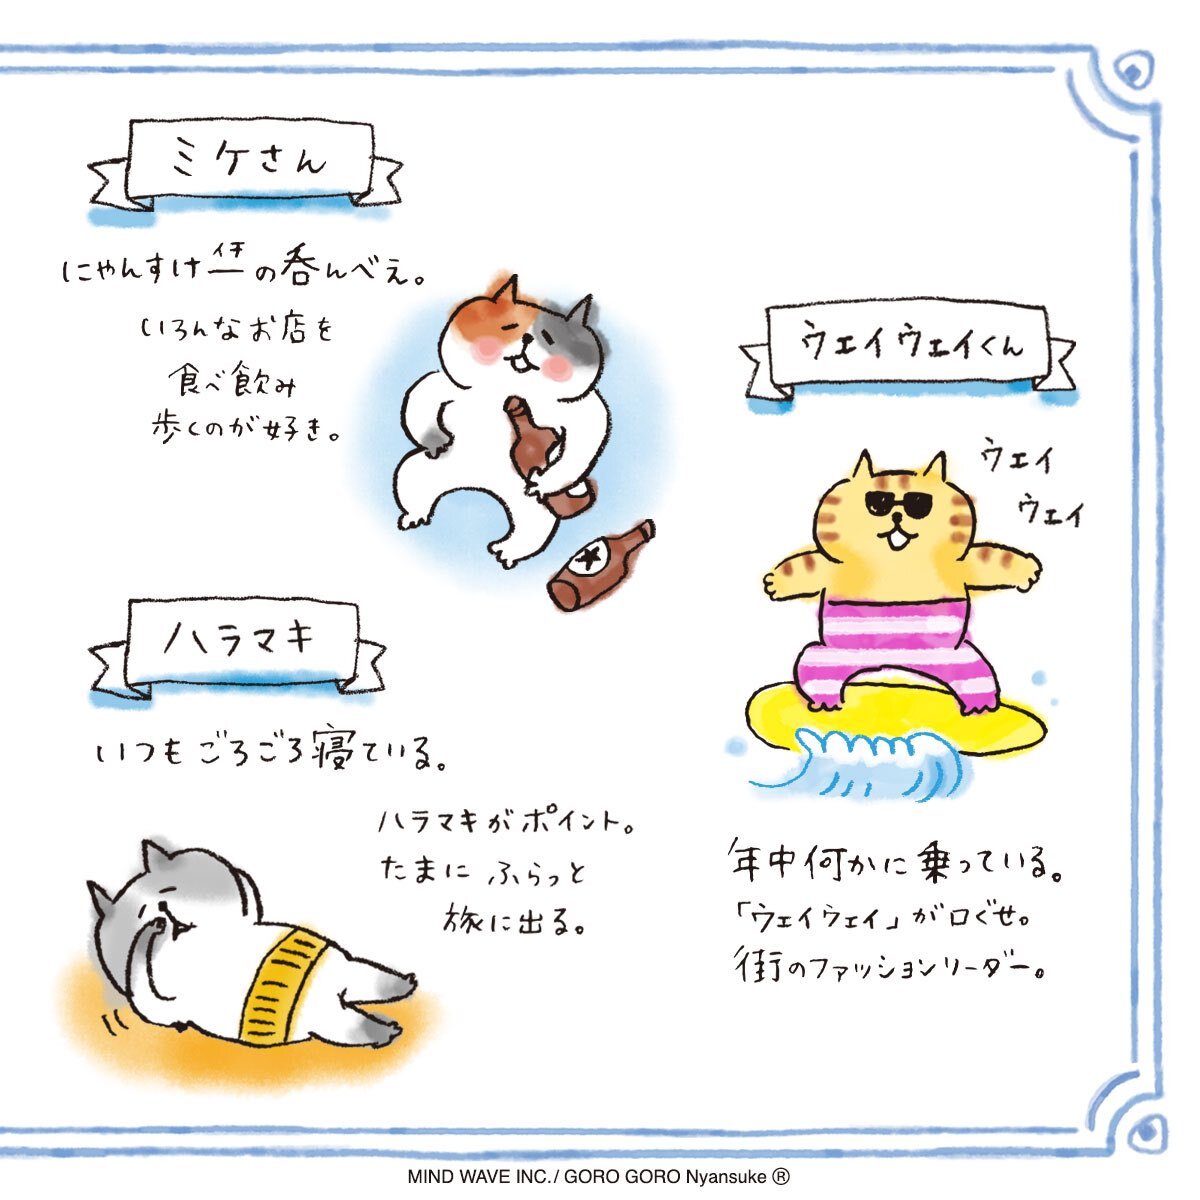 ミケさん
にゃんすけ一の呑んべえ。
イチ
いろんなお店を
食べ飲み
歩くのが好き。
ウェイウェイくん
ウェイ
ウェイ
年中何かに乗っている。
「ウェイウェイ」が口ぐせ。
街のファッションリーダー。
ハラマキ
いつもごろごろ寝ている。
ハラマキがポイント。
たまにふらっと
旅に出る。
MIND WAVE INC. / GORO GORO Nyansuke ®